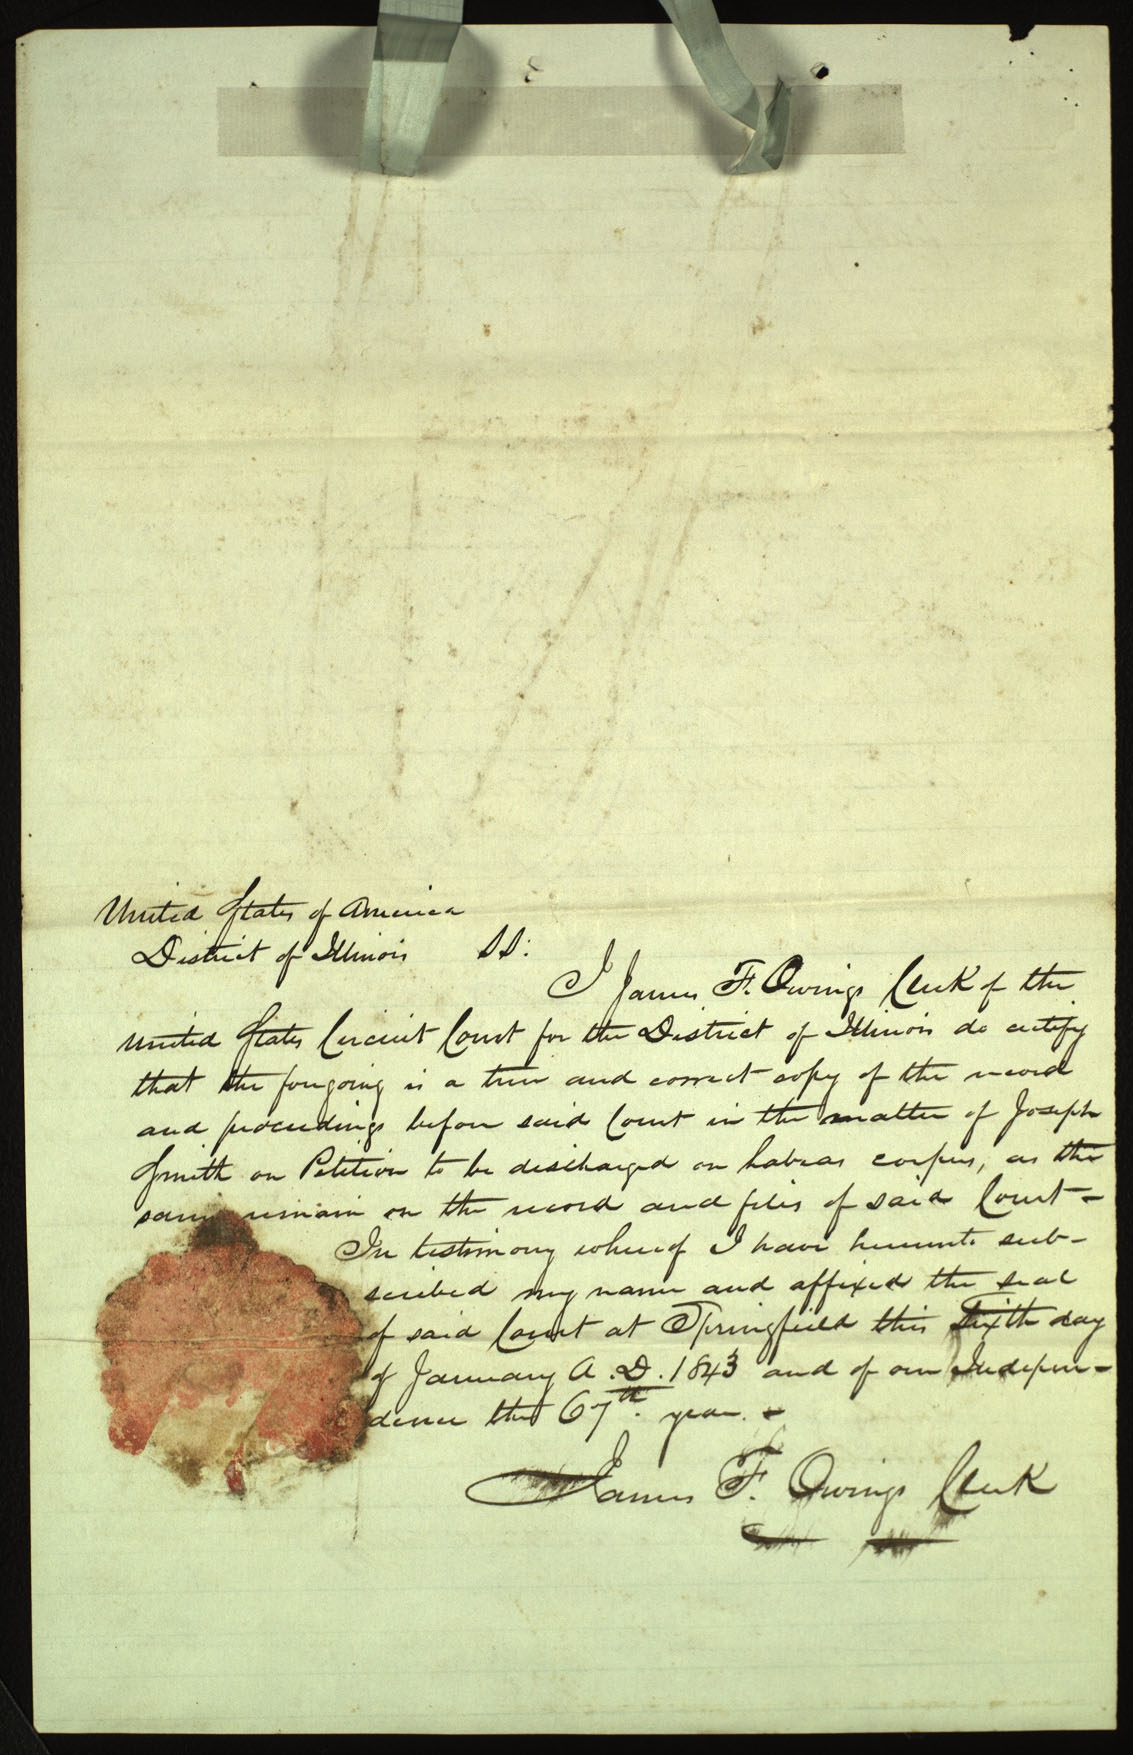 United States of America
District of Illinois SS:
I James F. Owings Clerk of the
United States Circuit Court for the District of Illinois do certify
that the foregoing is a true and correct copy of the record
and proceedings before said Court in the matter of Joseph
Smith on Petition to be discharged on habeas corpus, as the
same remain on the record and files of said Court-
In testimony whereof I have hereunto sub-
scribed my name and affixed the seal
of said Court at Springfield this Sixth day
of January A.D. 1843 and of our Indepen-
dence the 67th. year. -
James F. Owings Clerk